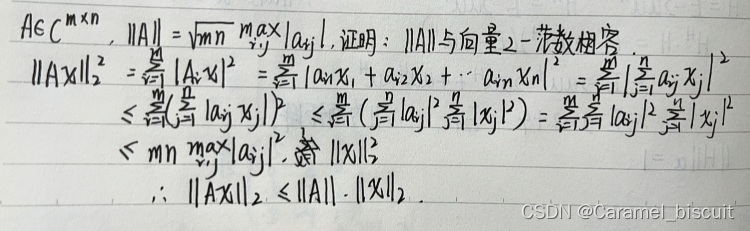 A∈C^{m×n}, ||A|| = √mn max_{i,j} |a_{ij}|, 证明: ||A||与向量2-范数相容.
||AX||_2^2 = ∑_{i=1}^m |A_i x|^2 = ∑_{i=1}^m |a_{i1}x_1 + a_{i2}x_2 + ⋯ a_{in}x_n|^2 = ∑_{i=1}^m |∑_{j=1}^n a_{ij} x_j|^2
≤ ∑_{i=1}^m (∑_{j=1}^n |a_{ij} x_j|)^2 ≤ ∑_{i=1}^m (∑_{j=1}^n |a_{ij}|^2 ∑_{j=1}^n |x_j|^2) = ∑_{i=1}^m ∑_{j=1}^n |a_{ij}|^2 ∑_{j=1}^n |x_j|^2
≤ mn max_{i,j} |a_{ij}|^2 · ||x||_2^2
∴ ||AX||_2 ≤ ||A|| · ||X||_2 .
CSDN @Caramel_biscuit